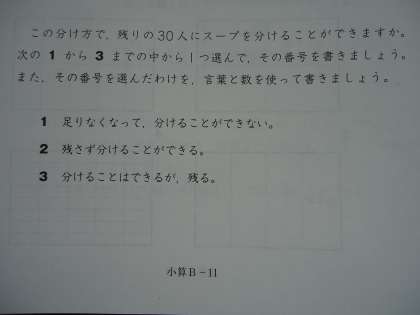 この分け方で、残りの30人にスープを分けることができますか。
次の 1 から 3 までの中から1つ選んで、その番号を書きましょう。
また、その番号を選んだわけを、言葉と数を使って書きましょう。
1 足りなくなって、分けることができない。
2 残さず分けることができる。
3 分けることはできるが、残る。
小算B－11